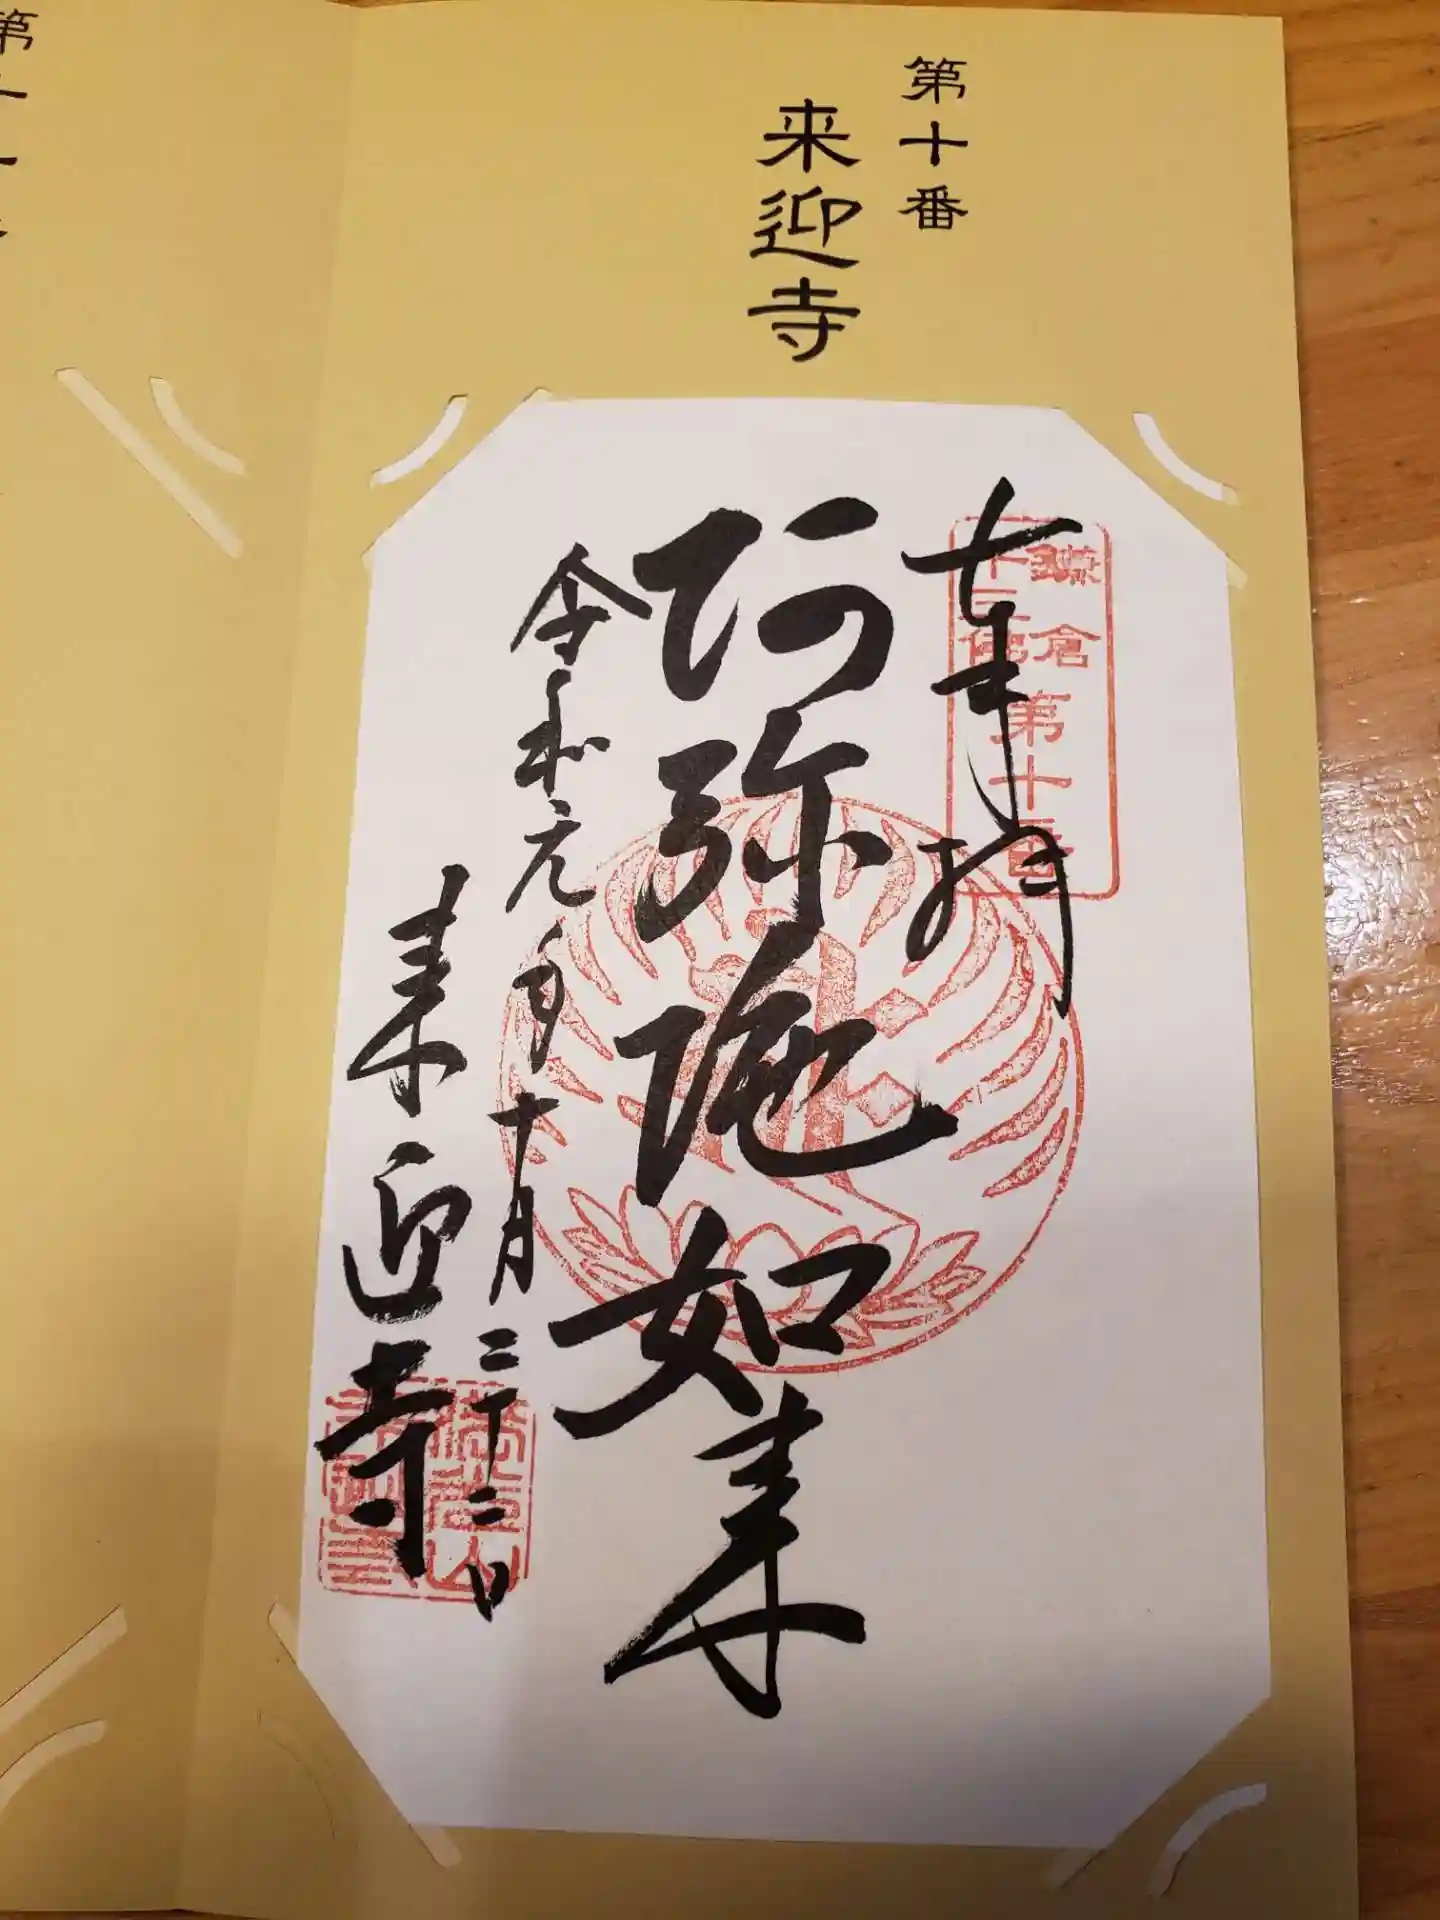 第十番
来迎寺
奉拝
鎌倉
十三佛
第十番
阿弥陀如来
令和元年十月二十二日
来迎寺